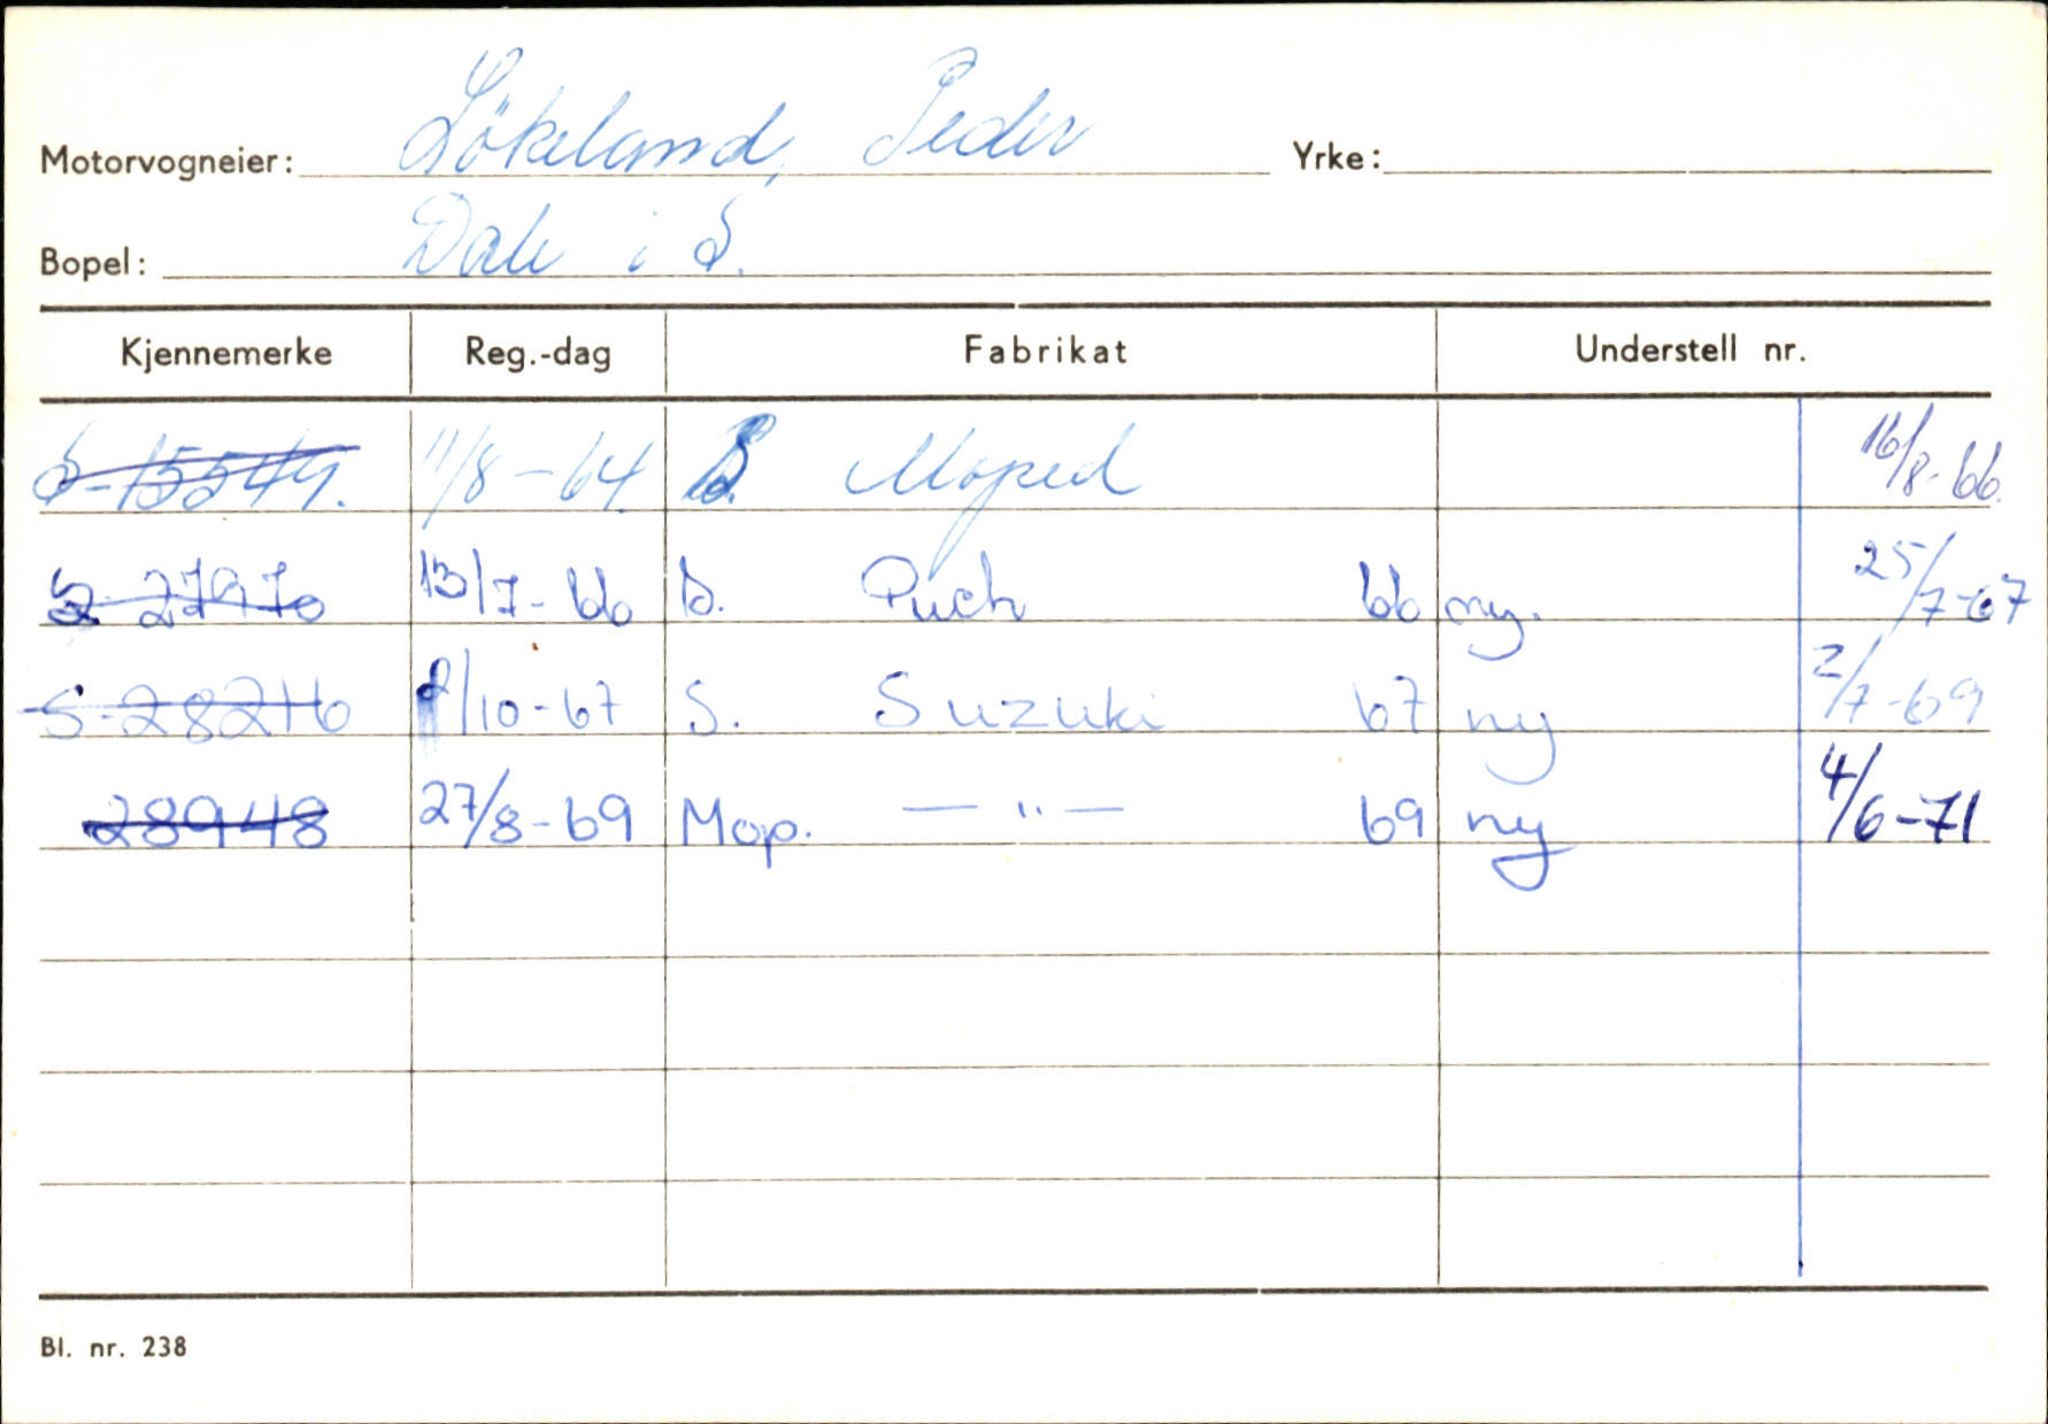 Motorvogneier: Lökeland, Peder Yrke:
Bopel: Dale i S.
Kjennemerke Reg.-dag Fabrikat Understell nr.
S-15549. 11/8-64. Moped 16/8-66.
S 27970 13/7-66 S. Puch 66 ny. 25/7-67
S-28216 /10-67 S. Suzuki 67 ny 2/7-69
28948 27/8-69 Mop. — " — 69 ny 4/6-71
Bl. nr. 238